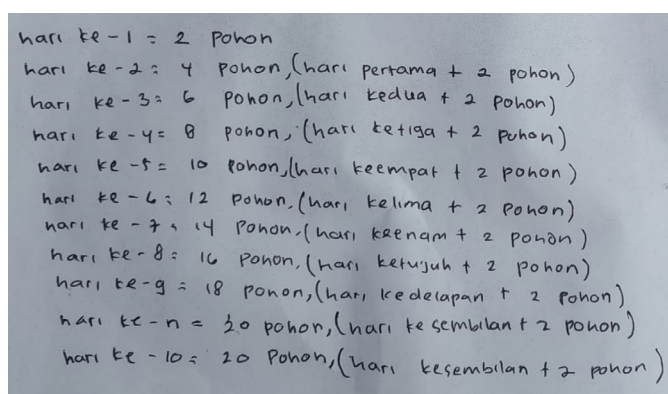 hari ke - 1 = 2 pohon
hari ke - 2 = 4 pohon, (hari pertama + 2 pohon)
hari ke - 3 = 6 pohon, (hari kedua + 2 pohon)
hari ke - 4 = 8 pohon, (hari ketiga + 2 pohon)
hari ke - 5 = 10 pohon, (hari keempat + 2 pohon)
hari ke - 6 = 12 pohon, (hari kelima + 2 pohon)
hari ke - 7 = 14 pohon, (hari keenam + 2 pohon)
hari ke - 8 = 16 pohon, (hari ketujuh + 2 pohon)
hari ke - 9 = 18 pohon, (hari kedelapan + 2 pohon)
hari ke - n = 20 pohon, (hari kesembilan + 2 pohon)
hari ke - 10 = 20 pohon, (hari kesembilan + 2 pohon)